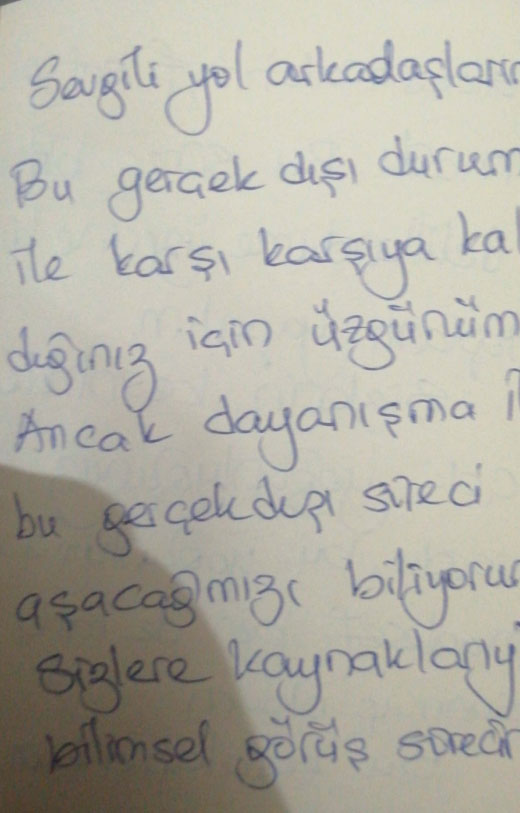 Sevgili yol arkadaşların
Bu gerçek dışı durum
ile karşı karşıya kal
dığınız için üzgünüm
Ancak dayanışma il
bu gerçekdışı süreci
aşacağımızı biliyorum
sizlere kaynaklarıy
bilimsel görüş sürecin